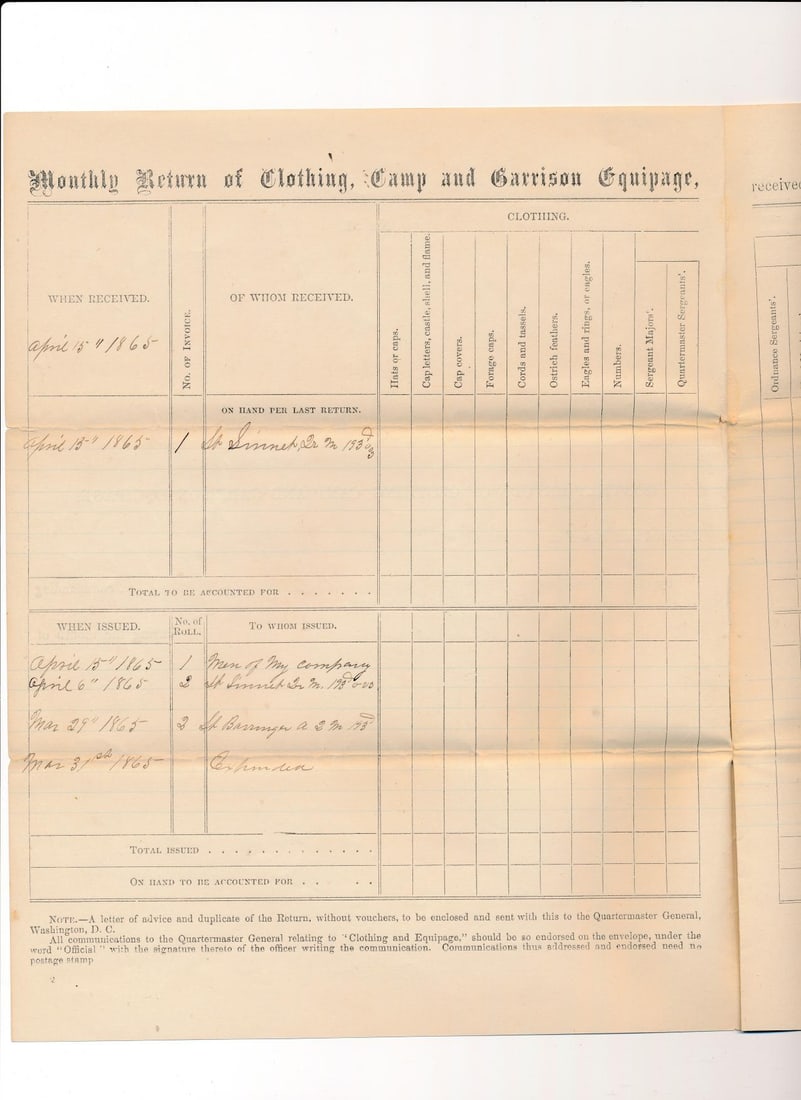 Monthly Return of Clothing, Camp and Garrison Equipage,
received
CLOTHING.
WHEN RECEIVED.
No. of Invoice.
OF WHOM RECEIVED.
Hats or caps.
Cap letters, castle, shell, and flame.
Cap covers.
Forage caps.
Cords and tassels.
Ostrich feathers.
Eagles and rings, or eagles.
Numbers.
Sergeant Majors'.
Quartermaster Sergeants'.
Ordnance Sergeants'.
April 15" 1865
ON HAND PER LAST RETURN.
April 15" 1865 1 Lt Sinnet Qr M 193d
Total to be accounted for . . . . . . .
WHEN ISSUED.
No. of Roll.
To whom issued.
April 15" 1865 1 Men of My company
April 6" 1865 2 Lt Sinnet Qr M. 193d
Mar 29" 1865 2 Lt Barringer A Q M 193d
Mar 31st 1865
Total issued . . . . . . . . . . . . .
On hand to be accounted for . . . .
Note.—A letter of advice and duplicate of the Return, without vouchers, to be enclosed and sent with this to the Quartermaster General,
Washington, D. C.
All communications to the Quartermaster General relating to "Clothing and Equipage," should be so endorsed on the envelope, under the
word "Official" with the signature thereto of the officer writing the communication. Communications thus addressed and endorsed need no
postage stamp
2